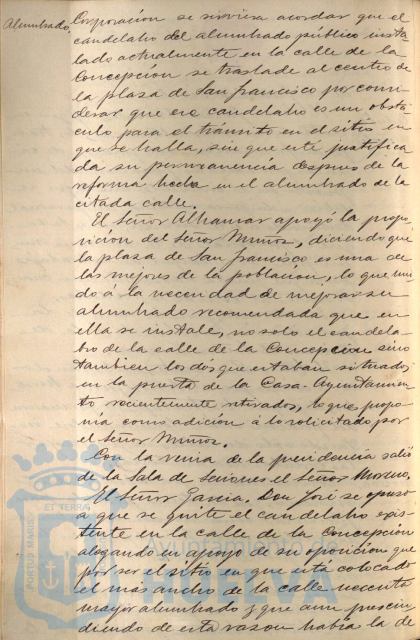 Alumbrado.
Corporación se sirviera acordar que el
candelabro del alumbrado público insta-
lado actualmente en la calle de la
Concepcion se traslade al centro de
la plaza de San Francisco por consi-
derar que ese candelabro es un obstá-
culo para el tránsito en el sitio en
que se halla, sin que esté justifica-
da su permanencia despues de la
reforma hecha en el alumbrado de la
citada calle.
El Señor Alhamar apoyó la propo-
sicion del Señor Muñoz, diciendo que
la plaza de San Francisco es una de
las mejores de la poblacion, lo que uni-
do á la necesidad de mejorar su
alumbrado recomendada que en
ella se instale, no solo el candela-
bro de la calle de la Concepcion sino
tambien los dos que estaban situados
en la puerta de la Casa-Ayuntamien-
to recientemente retirados, lo que propo-
nia como adición á lo solicitado por
el Señor Muñoz.
Con la venia de la presidencia salió
de la Sala de Sesiones el Señor Moreno.
El Señor Garcia Don José se opuso
a que se quite el candelabro exis-
tente en la calle de la Concepcion
alegando en apoyo de su oposicion que
por ser el sitio en que está colocado
el mas ancho de la calle necesita
mayor alumbrado y que aun prescin-
diendo de esta razon habia la de
PORTUS MARIS
ET TERRAE
Ayuntamiento de
HUELVA